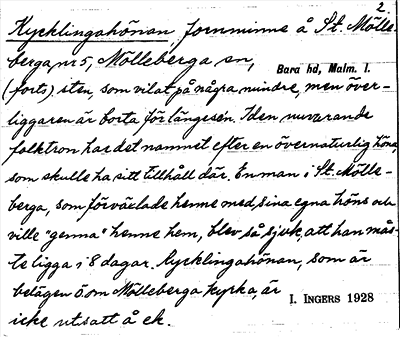 2.
Kycklingahönan, fornminne å St. Mölle-
berga, nr 5, Mölleberga sn,
Bara hd, Malm. l.
(forts) sten, som vilat på några mindre, men över-
liggaren är borta för länge sen. I den nuvarande
folktron har det namnet efter en övernaturlig höna,
som skulle ha sitt tillhåll där. En man i St. Mölle-
berga, som förväxlade henne med sina egna höns och
ville "genna" henne hem, blev så sjuk, att han mås-
te ligga i 8 dagar. Kycklingahönan, som är
belägen ö. om Mölleberga kyrka, är
I. INGERS 1928
icke utsatt å ek.